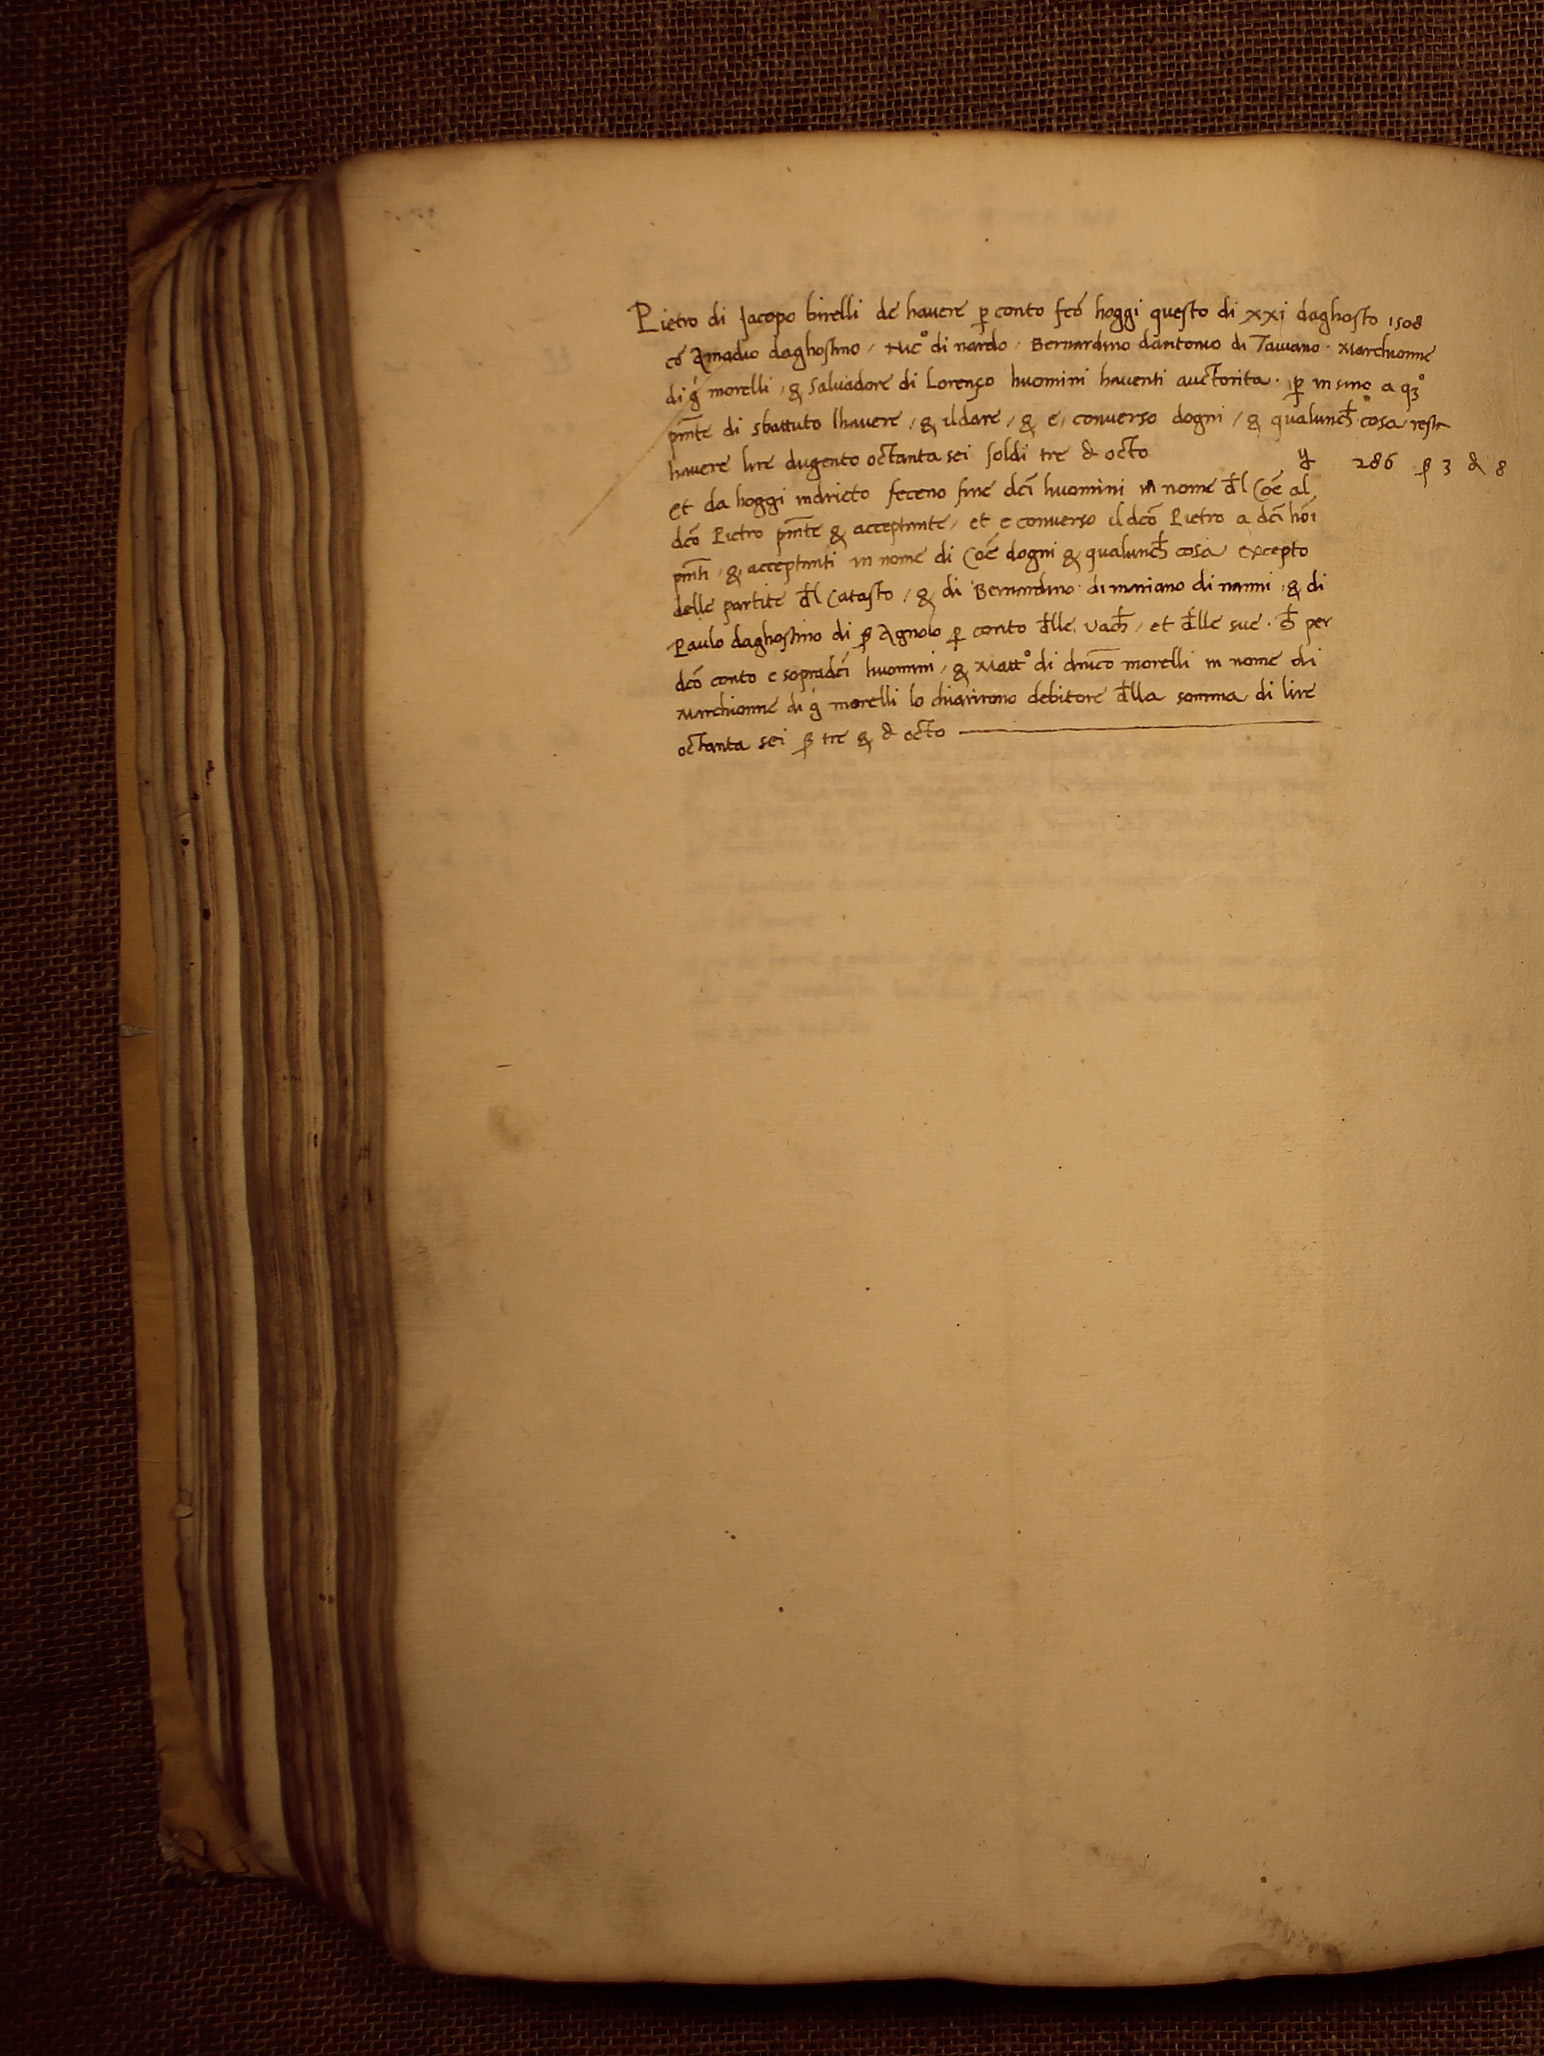 Pietro di Jacopo birelli de havere ꝑ conto fcõ hoggi questo di xxi daghosto 1508
cõ Amadio daghostino / Nic° di nardo / Bernardino dantonio di Taviano · Marchionne
di g̃ morelli / & Salvadore di Lorenço huomini haventi auctorita · ꝑ insino a q3°
pñte di sbattuto lhavere / & ildare / & e, converso dogni / & qualunch̃ cosa resta
havere lire dugento octanta sei soldi tre d octo 286 ꝑ 3 d 8
Et da hoggi indrieto feceno fine dcĩ huomini in nome d̃l Coẽ al
dcõ Pietro pñte & acceptante / et e converso il dcõ Pietro a dcĩ hõi
pñti / & acceptanti in nome di Coẽ dogni & qualunch̃ cosa excepto
delle partite d̃l Catasto / & di Bernardino di mariano di nanni & di
Paulo daghostino di ẞ Agnolo ꝑ conto d̃lle vach̃ / et d̃lle sue · ch̃ per
dcõ conto e sopradcĩ huomini / & Matt° di dñico morelli in nome di
Marchionne di g̃ morelli lo chiarirono debitore d̃lla somma di lire
octanta sei ẞ tre & d octo